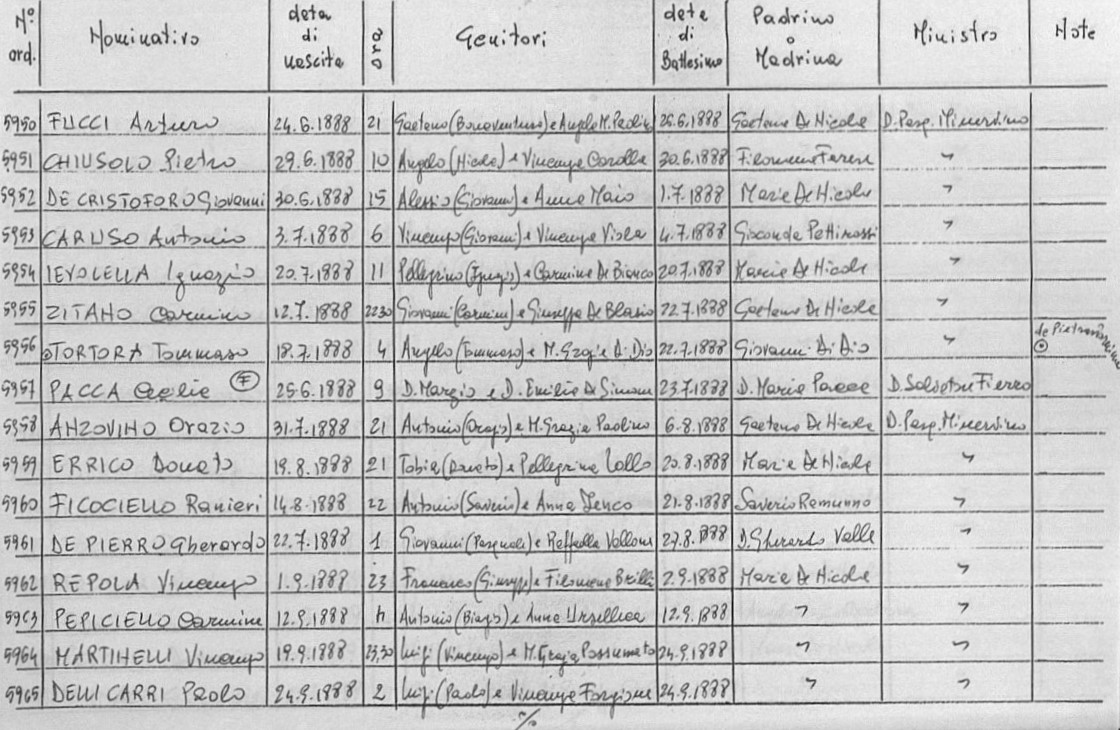 N.º ord. Nominativo data di nascita ora Genitori data di Battesimo Padrino o Madrina Ministro Note
5950 FUCCI Arturo 24.6.1888 21 Gaetano (Bonaventura) e Angela M. Paolin 26.6.1888 Gaetana De Nicola D. Pasq. Minervino
5951 CHIUSOLO Pietro 29.6.1888 10 Angelo (Nicola) e Vincenza Corolla 30.6.1888 Filomena Farese "
5952 DE CRISTOFORO Giovanni 30.6.1888 15 Alessio (Giovanni) e Anna Maio 1.7.1888 Maria De Nicola "
5953 CARUSO Antonio 3.7.1888 6 Vincenzo (Giovanni) e Vincenza Viola 4.7.1888 Gioconda Pettinossi "
5954 IEVOLELLA Ignazio 20.7.1888 11 Pellegrino (Ignazio) e Carmina De Bianco 20.7.1888 Maria De Nicola "
5955 ZITANO Carmino 12.7.1888 2230 Giovanni (Carmine) e Giuseppa De Blasio 22.7.1888 Gaetana De Nicola "
5956 TORTORA Tommaso 18.7.1888 4 Angelo (Tommaso) e M. Grazia Di Dio 22.7.1888 Giovanni Di Dio " de Pietrantonio
5957 PACCA Cecilia (F) 25.6.1888 9 D. Marzio e D. Emilia De Simone 23.7.1888 D. Maria Pacca D. Salvatore Fierro
5958 ANZOVINO Orazio 31.7.1888 21 Antonio (Orazio) e M. Grazia Paolino 6.8.1888 Gaetana De Nicola D. Pasq. Minervino
5959 ERRICO Donato 19.8.1888 21 Tobia (Donato) e Pellegrina Lollo 20.8.1888 Maria De Nicola "
5960 FICOCIELLO Ranieri 14.8.1888 22 Antonio (Saverio) e Anna Ienco 21.8.1888 Saverio Romunno "
5961 DE PIERRO Gherardo 22.7.1888 1 Giovanni (Pasquale) e Raffaella Vallone 27.8.1888 D. Gherardo Valle "
5962 REPOLA Vincenzo 1.9.1888 23 Francesco (Giuseppe) e Filomena Brilli 2.9.1888 Maria De Nicola "
5963 PEPICIELLO Carmine 12.9.1888 Antonio (Biagio) e Anna Ursillica 12.9.1888 " "
5964 MARTINELLI Vincenzo 19.9.1888 23,30 Luigi (Vincenzo) e M. Grazia Possumato 24.9.1888 " "
5965 DELLI CARRI Paolo 24.9.1888 2 Luigi (Paolo) e Vincenza Forgione 24.9.1888 " "
%